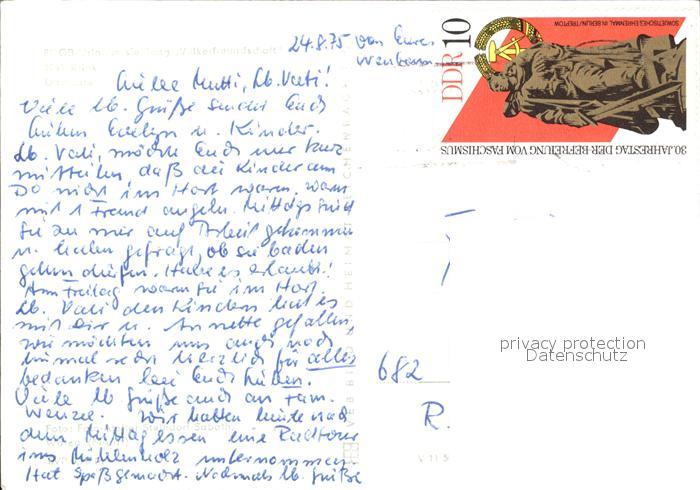 24.8.75 von Eurer
Mutti, lb. Vati!
Viele lb. Grüße sendet Euch
Evelyn u. Kinder.
lb. Vati, möchte Euch nur kurz
mitteilen, daß die Kinder am
Do nicht im Hort waren, waren
mit 1 Freund angeln. Mittags sind
sie zu mir auf Arbeit gekommen
u. haben gefragt, ob sie baden
gehen dürfen. Habe es erlaubt!
Am Freitag waren sie im Hort.
Lb. Vati den Kindern hat es
mit Dir u. Annette gefallen,
wir möchten uns auch noch
einmal sehr herzlich für alles
bedanken bei Euch beiden.
Viele lb. Grüße auch an Fam.
Wenzel. Wir hatten heute nach
dem Mittagessen eine Radtour
ins Mühlenholz unternommen.
Hat Spaß gemacht. Nochmals lb. Grüße
DDR 10
SOWJETISCHES EHRENMAL IN BERLIN-TREPTOW
30. JAHRESTAG DER BEFREIUNG VOM FASCHISMUS
privacy protection
Datenschutz
682
R.
V 11 5